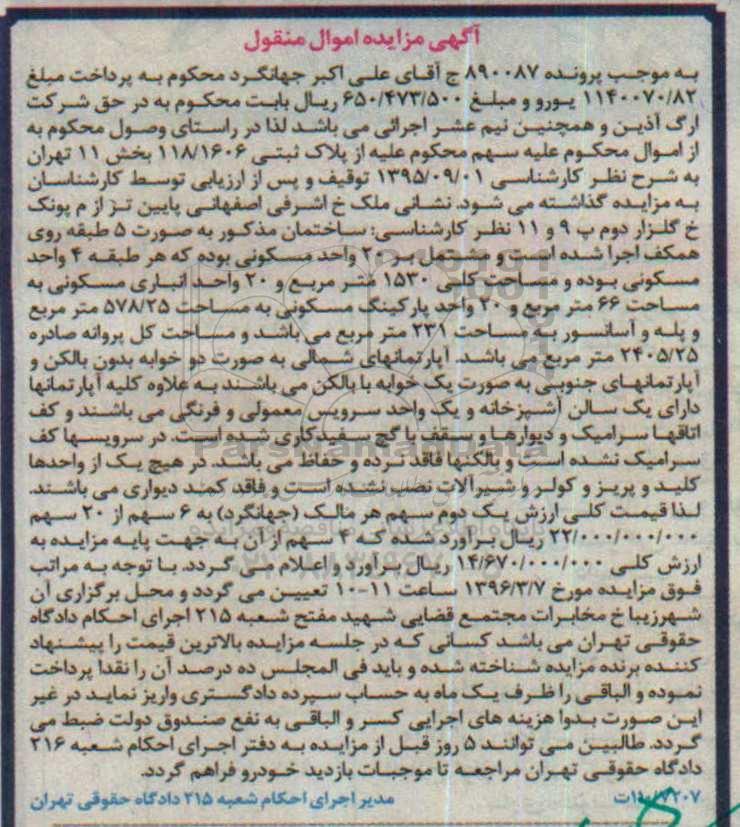 آگهی مزایده اموال منقول
به موجب پرونده ۸۹۰۰۸۷ ج آقای علی اکبر جهانگرد محکوم به پرداخت مبلغ
۱۱۴۰۰۷۰/۸۲ یورو و مبلغ ۶۵۰/۴۷۳/۵۰۰ ریال بابت محکوم به در حق شرکت
ارگ آذین و همچنین نیم عشر اجرائی می باشد لذا در راستای وصول محکوم به
از اموال محکوم علیه سهم محکوم علیه از پلاک ثبتی ۱۱۸/۱۶۰۶ بخش ۱۱ تهران
به شرح نظر کارشناسی ۱۳۹۵/۰۹/۰۱ توقیف و پس از ارزیابی توسط کارشناسان
به مزایده گذاشته می شود. نشانی ملک خ اشرفی اصفهانی پایین تر از م پونک
خ گلزار دوم پ ۹ و ۱۱ نظر کارشناسی: ساختمان مذکور به صورت ۵ طبقه روی
همکف اجرا شده است و مشتمل بر ۲۰ واحد مسکونی بوده که هر طبقه ۴ واحد
مسکونی بوده و مساحت کلی ۱۵۳۰ متر مربع و ۲۰ واحد انباری مسکونی به
مساحت ۶۶ متر مربع و ۲۰ واحد پارکینگ مسکونی به مساحت ۵۷۸/۲۵ متر مربع
و پله و آسانسور به مساحت ۲۳۱ متر مربع می باشد و مساحت کل پروانه صادره
۲۴۰۵/۲۵ متر مربع می باشد. آپارتمانهای شمالی به صورت دو خوابه بدون بالکن و
آپارتمانهای جنوبی به صورت یک خوابه با بالکن می باشند به علاوه کلیه آپارتمانها
دارای یک سالن آشپزخانه و یک واحد سرویس معمولی و فرنگی می باشند و کف
اتاقها سرامیک و دیوارها و سقف با گچ سفیدکاری شده است. در سرویسها کف
سرامیک نشده است و بالکنها فاقد نرده و حفاظ می باشد. در هیچ یک از واحدها
کلید و پریز و کولر و شیرآلات نصب نشده است و فاقد کمد دیواری می باشند.
لذا قیمت کلی ارزش یک دوم سهم هر مالک (جهانگرد) به ۶ سهم از ۲۰ سهم
۲۲/۰۰۰/۰۰۰/۰۰۰ ریال برآورد شده که ۴ سهم از آن به جهت پایه مزایده به
ارزش کلی ۱۴/۶۷۰/۰۰۰/۰۰۰ ریال برآورد و اعلام می گردد. با توجه به مراتب
فوق مزایده مورخ ۱۳۹۶/۳/۷ ساعت ۱۱-۱۰ تعیین می گردد و محل برگزاری آن
شهرزیبا خ مخابرات مجتمع قضایی شهید مفتح شعبه ۲۱۵ اجرای احکام دادگاه
حقوقی تهران می باشد کسانی که در جلسه مزایده بالاترین قیمت را پیشنهاد
کننده برنده مزایده شناخته شده و باید فی المجلس ده درصد آن را نقدا پرداخت
نموده و الباقی را ظرف یک ماه به حساب سپرده دادگستری واریز نماید در غیر
این صورت بدوا هزینه های اجرایی کسر و الباقی به نفع صندوق دولت ضبط می
گردد. طالبین می توانند ۵ روز قبل از مزایده به دفتر اجرای احکام شعبه ۲۱۶
دادگاه حقوقی تهران مراجعه تا موجبات بازدید خودرو فراهم گردد.
مدیر اجرای احکام شعبه ۲۱۵ دادگاه حقوقی تهران
ParsNamadData